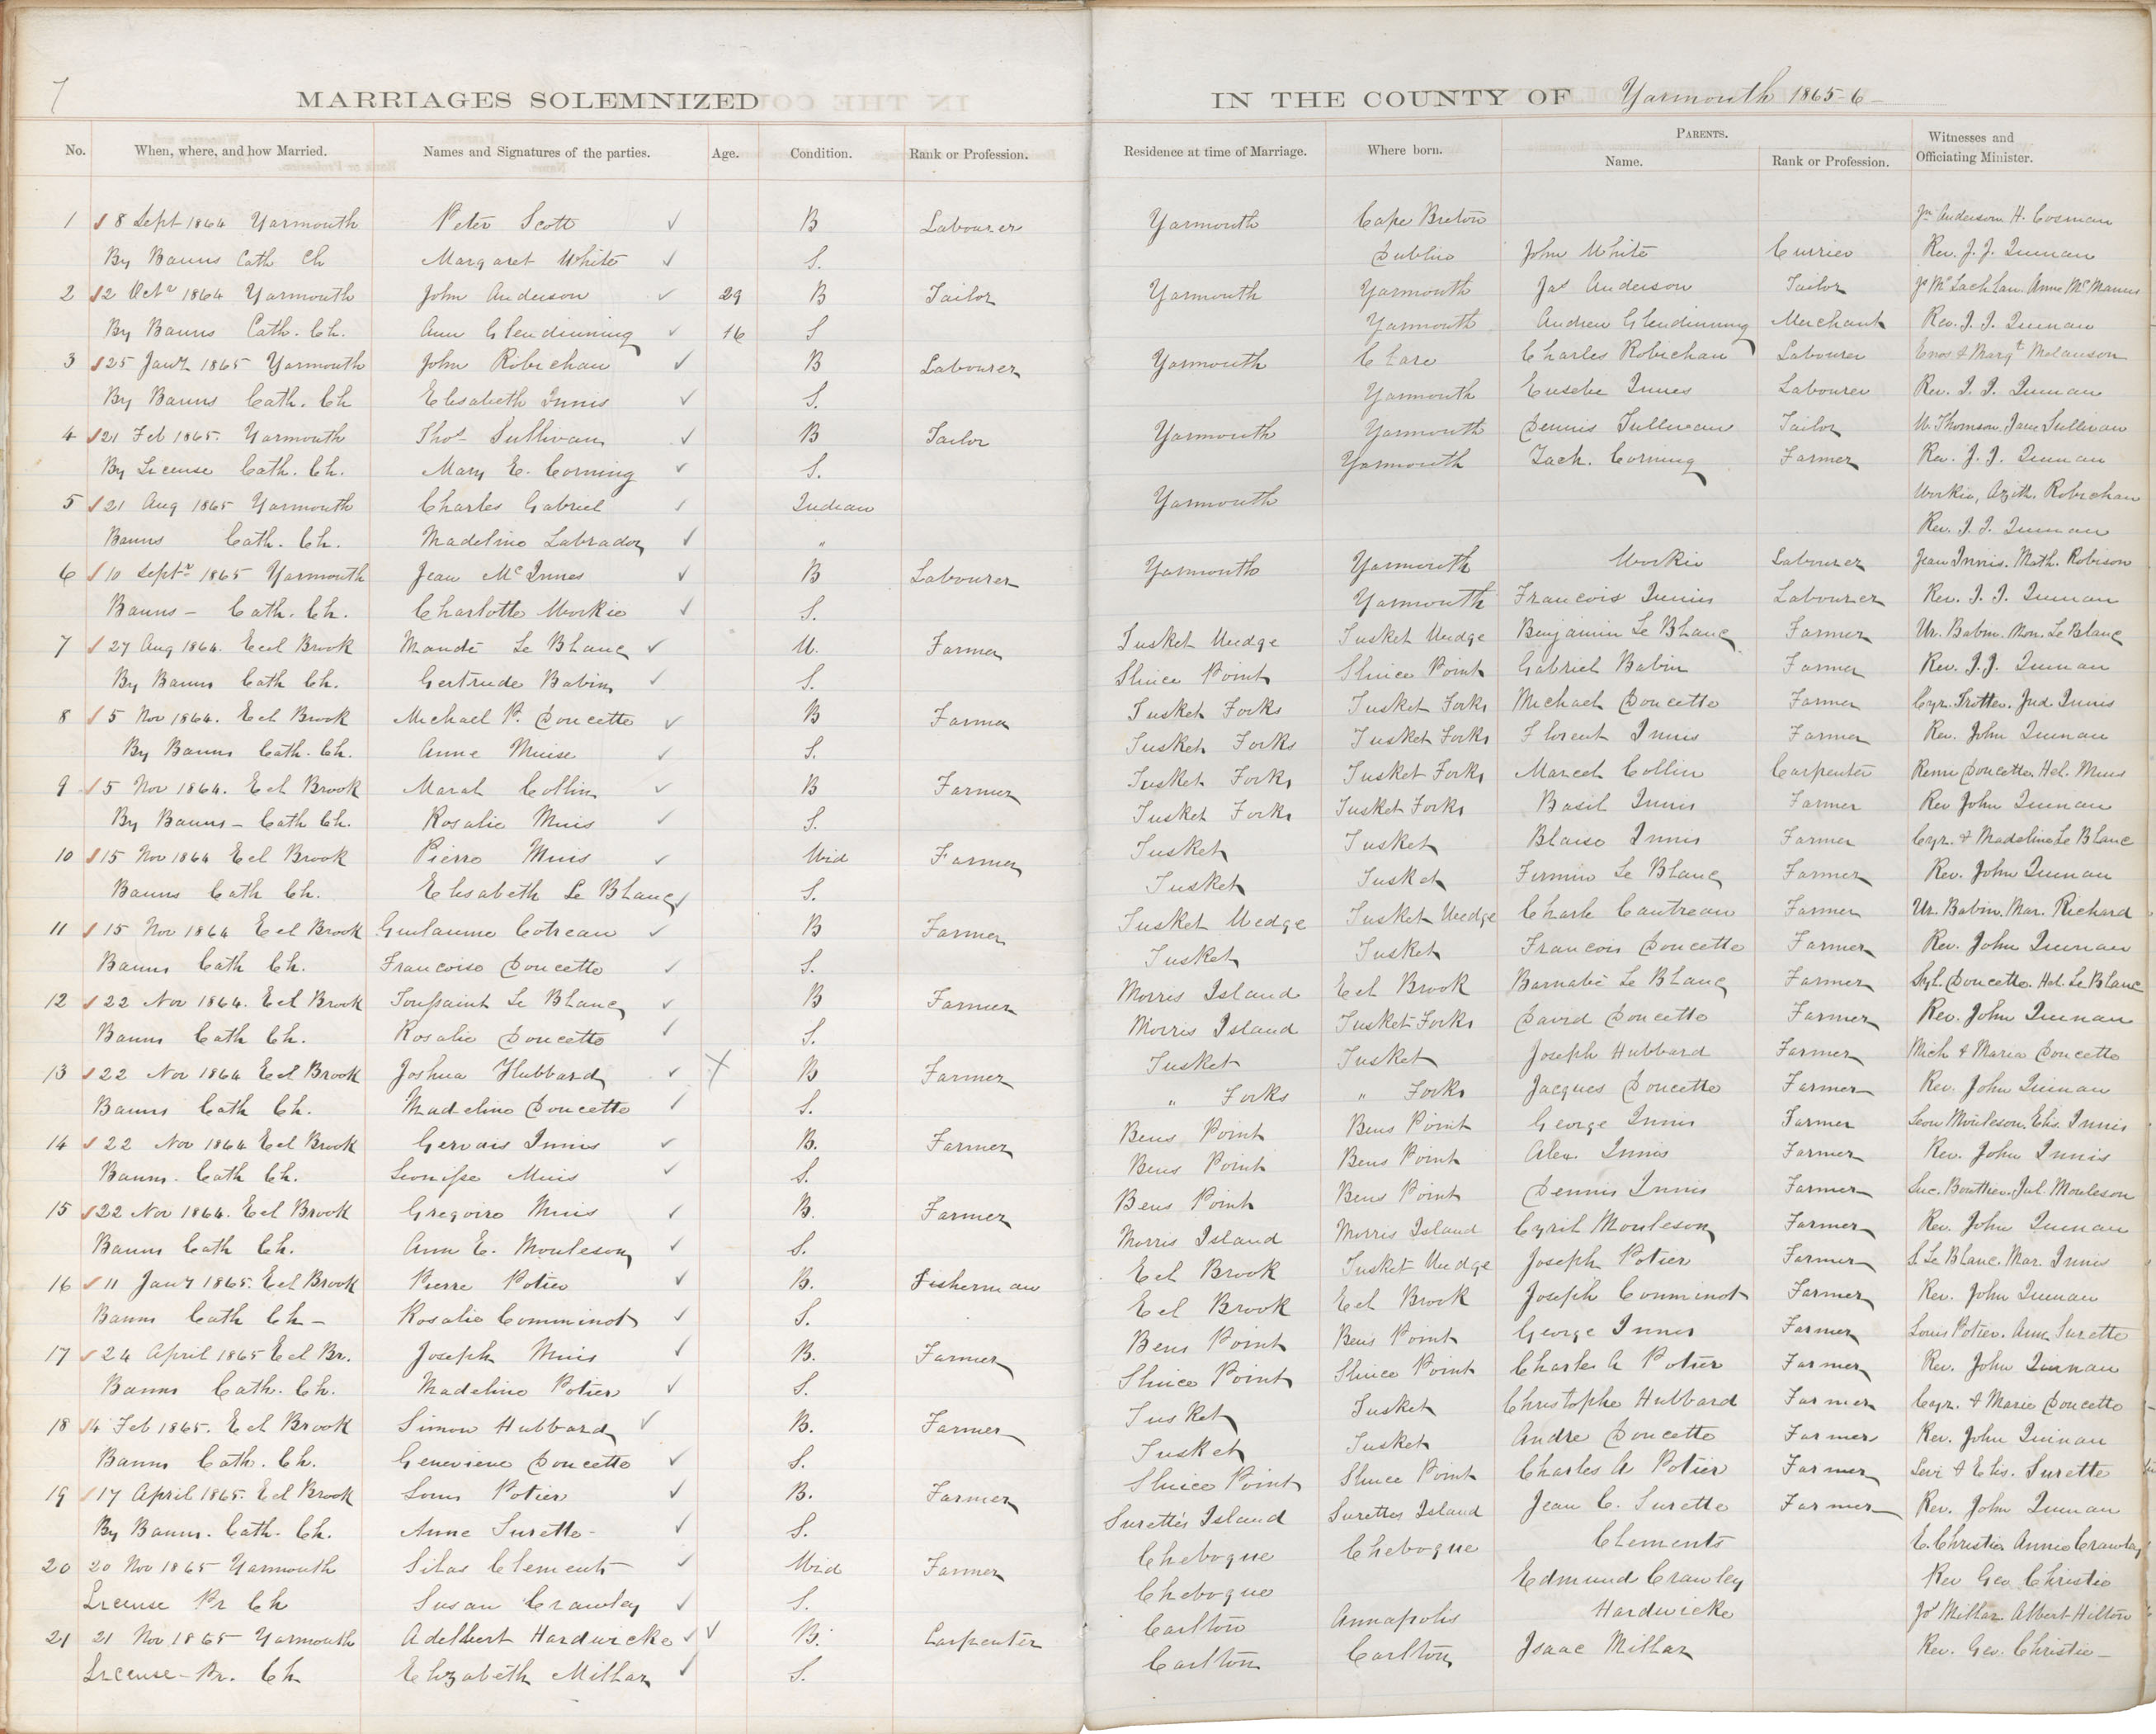 7
MARRIAGES SOLEMNIZED IN THE COUNTY OF Yarmouth 1865-6-
No. When, where, and how Married. Names and Signatures of the parties. Age. Condition. Rank or Profession. Residence at time of Marriage. Where born. PARENTS. Name. Rank or Profession. Witnesses and Officiating Minister.
1 8 Sept 1864 Yarmouth Peter Scott B Labourer Yarmouth Cape Breton Jn Anderson H. Cosman
By Banns Cath Ch Margaret White S. Dublin John White Currier Rev. J. J. Quinan
2 2 Octr 1864 Yarmouth John Anderson 29 B Tailor Yarmouth Yarmouth Jas Anderson Tailor Js McLachlan. Anne McManus
By Banns Cath. Ch. Ann Glendinning 16 S Yarmouth Andrew Glendinning Merchant Rev. J. J. Quinan
3 25 Jany 1865 Yarmouth John Robichau B Labourer Yarmouth Clare Charles Robichau Labourer Enos & Margt Melanson
By Banns Cath. Ch Elisabeth Innis S. Yarmouth Eusebe Innes Labourer Rev. J. J. Quinan
4 21 Feb 1865. Yarmouth Thos Sullivan B Tailor Yarmouth Yarmouth Dennis Sullivan Tailor W. Thomson. Jane Sullivan
By License Cath. Ch. Mary E. Corning S. Yarmouth Zach. Corning Farmer Rev. J. J. Quinan
5 21 Aug 1865 Yarmouth Charles Gabriel Indian Yarmouth Workie, Robichau
Banns Cath. Ch. Madeline Labrador " Rev. J. J. Quinan
6 10 Septr 1865 Yarmouth Jean McInnes B Labourer Yarmouth Yarmouth Workie Labourer Jean Innis. Math. Robison
Banns - Cath. Ch. Charlotte Workie S. Yarmouth Francois Innis Labourer Rev. J. J. Quinan
7 27 Aug 1864. Eel Brook Mandé Le Blanc Farmer Tusket Wedge Tusket Wedge Benjamin Le Blanc Farmer Ur. Babin. Mon. Le Blanc
By Banns Cath Ch. Gertrude Babin S. Sluice Point Sluice Point Gabriel Babin Farmer Rev. J. J. Quinan
8 5 Nov 1864. Eel Brook Michael P. Doucette B Farmer Tusket Forks Tusket Forks Michael Doucette Farmer Cyr. Trottier. Jud. Innis
By Banns Cath. Ch. Anne Muise S. Tusket Forks Tusket Forks Florent Innis Farmer Rev. John Quinan
9 5 Nov 1864. Eel Brook Maral Collin B Farmer Tusket Forks Tusket Forks Marcel Collin Carpenter Remi Doucette. Hel. Muis
By Banns - Cath Ch. Rosalie Muis S. Tusket Forks Tusket Forks Basil Innis Farmer Rev John Quinan
10 15 Nov 1864 Eel Brook Pierre Muis Wid Farmer Tusket Tusket Blaise Innis Farmer Cyr. & Madeline Le Blanc
Banns Cath Ch. Elisabeth Le Blanc S. Tusket Tusket Firmin Le Blanc Farmer Rev. John Quinan
11 15 Nov 1864 Eel Brook Guilaume Cotreau B Farmer Tusket Wedge Tusket Wedge Charle Cautreau Farmer Ur. Babin. Mar. Richard
Banns Cath Ch. Francoise Doucette S. Tusket Tusket Francois Doucette Farmer Rev. John Quinan
12 22 Nov 1864. Eel Brook Toussaint Le Blanc B Farmer Morris Island Eel Brook Barnabé Le Blanc Farmer Syl. Doucette. Hel. Le Blanc
Banns Cath Ch. Rosalie Doucette S. Morris Island Tusket Forks David Doucette Farmer Rev. John Quinan
13 22 Nov 1864 Eel Brook Joshua Hubbard X B Farmer Tusket Tusket Joseph Hubbard Farmer Mich & Maria Doucette
Banns Cath Ch. Madeline Doucette S. " Forks " Forks Jacques Doucette Farmer Rev. John Quinan
14 22 Nov 1864 Eel Brook Gervais Innis B. Farmer Bens Point Bens Point George Innis Farmer Leon Mouleson. Elis. Innis
Banns. Cath Ch. Muis S. Bens Point Bens Point Alex. Innis Farmer Rev. John Innis
15 22 Nov 1864. Eel Brook Gregoire Muis B. Farmer Bens Point Bens Point Dennis Innis Farmer Luc. Bouthier. Jul. Mouleson
Banns Cath Ch. Ann E. Mouleson S. Morris Island Morris Island Cyril Mouleson Farmer Rev. John Quinan
16 11 Jany 1865. Eel Brook Pierre Potier B. Fisherman Eel Brook Tusket Wedge Joseph Potier Farmer S. Le Blanc. Mar. Innis
Banns Cath Ch - Rosalie Comminot S. Eel Brook Eel Brook Joseph Comminot Farmer Rev. John Quinan
17 24 April 1865 Eel Br. Joseph Muis B. Farmer Bens Point Bens Point George Innis Farmer Louis Potier. Ann Surette
Banns Cath. Ch. Madeline Potier S. Sluice Point Sluice Point Charles A Potier Farmer Rev. John Quinan
18 14 Feb 1865. Eel Brook Simon Hubbard B. Farmer Tusket Tusket Christophe Hubbard Farmer Cyr. & Marie Doucette
Banns Cath. Ch. Genevieve Doucette S. Tusket Tusket Andre Doucette Farmer Rev. John Quinan
19 17 April 1865. Eel Brook Louis Potier B. Farmer Sluice Point Sluice Point Charles A Potier Farmer Levi & Elis. Surette
By Banns. Cath. Ch. Anne Surette - S. Surette's Island Surettes Island Jean C. Surette Farmer Rev. John Quinan
20 20 Nov 1865 Yarmouth Silas Clements Wid Farmer Chebogue Chebogue Clements E. Christie Annie Crawley
License Pr Ch Susan Crawley S. Chebogue Edmund Crawley Rev Geo Christie
21 21 Nov 1865 Yarmouth Adelbert Hardwicke B. Carpenter Carlton Annapolis Hardwicke Jos Millar Albert Hilton
License - Pr. Ch Elizabeth Millar S. Carlton Carlton Isaac Millar Rev. Geo. Christie -